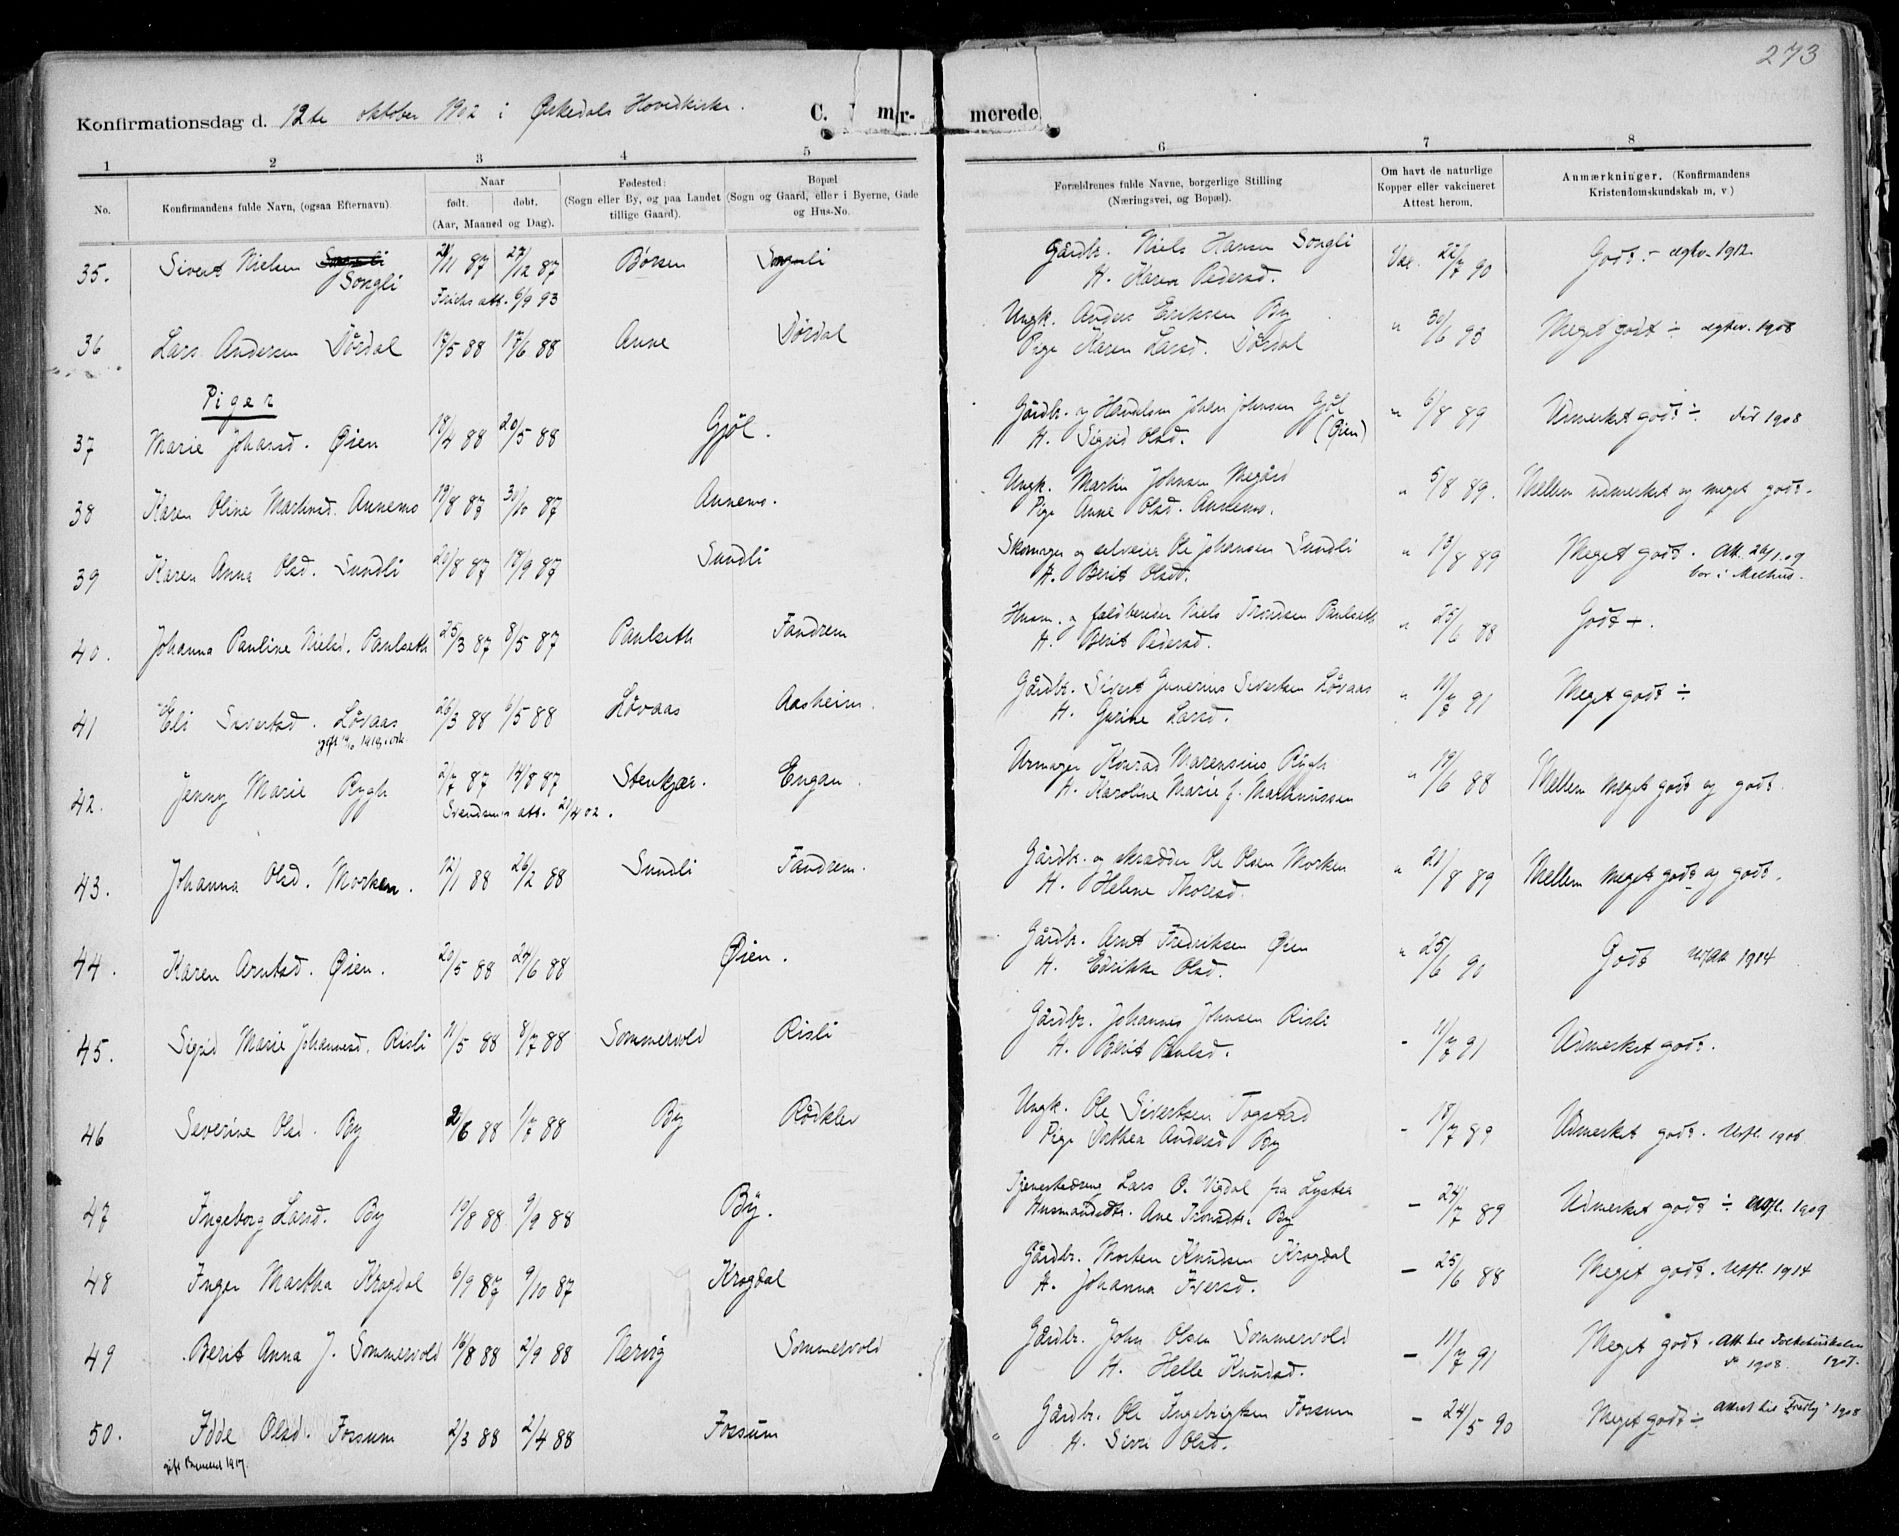 273
Konfirmationsdag d. 12te oktober 1902 i Ørkedals Hovedkirke.
merede
1 2 3 4 5 6 7 8
No. Konfirmandens fulde Navn, (ogsaa Efternavn). Naar født. døbt. (Aar, Maaned og Dag). Fødested: (Sogn eller By, og paa Landet tillige Gaard). Bopæl (Sogn og Gaard, eller i Byerne, Gade og Hus-No. Forældrenes fulde Navne, borgerlige Stilling (Næringsvei, og Bopæl). Om havt de naturlige Kopper eller vakcineret Attest herom. Anmærkninger. (Konfirmandens Kristendomskundskab m, v.)
35. Sivert Nielsen Songli 21/11 87 27/12 87 Børsen Songli Gårdbr. Niels Hansen Songli Vac. 22/7 90 Godt. - 1912
Frichs att. 6/9 93 H. Karen Pedersd.
36 Lars Andersen Dørdal 17/5 88 17/6 88 Anne Dørdal Ungk. Anders Eriksen By " 30/6 93 Meget godt ÷ 1908
Pige Karen Larsd. Dørdal
Piger
37 Marie Johansd. Øien 18/4 88 20/5 88 Gjöl. Gårdbr. og Johan Johnsen Gjöl " 6/8 89 Udmerket godt ÷ 1908
H. Sigrid Olsd. (Øien)
38 Karen Oline Martinsd. Annemo 19/8 87 30/10 87 Annemo. Ungk. Martin Johnsen Megård " 5/8 89. Mellem udmerket og meget godt.
Pige Anne Olsd. Annemo.
39 Karen Anna Olsd. Sundli 20/8 87 18/9 87 Sundli Skomager og selveier Ole Johansen Sundli " 13/8 89 Meget godt. Att. 20/1 09
H. Berit Olsdt. bor i Melhus.
40. Johanna Pauline Nielsd. Paulseth 25/3 87 8/5 87 Paulseth Fandrem Husm. og Niels Trondsen Paulseth " 25/6 88 Godt +.
H. Berit Pedersd.
41 Eli Sivertsd. Løvaas 26/3 88 6/5 88 Løvaas Aasheim. Gårdbr. Sivert Gunerius Sivertsen Løvaas " 11/7 91 Meget godt ÷
gift H. Gurine Larsd.
42. Jenny Marie Rygh 2/7 87 14/8 87 Stenkjær. Engan. Urmager Konrad Marensius Rygh " 19/6 88 Mellem meget godt og godt.
Svendsens att. 21/4 02. H. Karoline Marie f. Martinussen
43. Johanna Olsd. Morken. 12/1 88 26/2 88 Sundli Fandrem. Gårdbr. og skrædder Ole Olsen Morken " 21/8 89 Mellem meget godt og godt.
H. Helene Thoresd.
44. Karen Arntsd. Øien. 20/5 88 24/6 88 Øien. Gårdbr. Arnt Fredriksen Øien " 25/6 90 Godt 1914
H. Edrikke Olsd.
45. Sigrid Marie Johannesd. Risli 11/5 88 8/7 88 Sommervold Risli Gårdbr. Johannes Johnsen Risli - 11/7 91 Udmerket godt.
H. Berit Paulsd.
46 Severine Olsd. By 2/6 88 1/7 88 By Rødklev Ungk. Ole Sivertsen Togstad - 18/7 89 Udmerket godt. Utfl. 1906
Pige Dorthea Andersd. By
47 Ingeborg Larsd. By 19/8 88 9/9 88 By. Lars O. Vigdal fra Lyster - 24/7 89 Udmerket godt ÷ utfl. 1909
Husmandsdtr. Ane Trondsdtr. By
48 Inger Martha Krogdal 6/9 87 9/10 87 Krogdal Gårdbr. Morten Knudsen Krogdal - 25/6 88 Meget godt. Utfl. 1914
H. Johanna Iversd.
49 Berit Anna J. Sommervold 16/8 88 2/9 88 Nervig Sommervold Gårdbr. John Olsen Sommervold - 11/7 91 Meget godt. Att. til Folkehøiskolen 1907.
H. Helle Knudsd. do 1908.
50. Idde Olsd. Fossum 2/3 88 2/4 88 Fossum Gårdbr. Ole Ingebrigtsen Fossum - 24/5 90 Meget godt ÷ Attest til 1908
gift 1917. H. Siri Olsd.